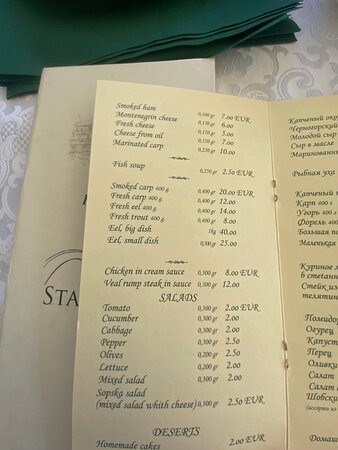 Smoked ham 0,100 gr 7.00 EUR
Montenegrin cheese 0,150 gr 6.00
Fresh cheese 0,150 gr 5.00
Cheese from oil 0,150 gr 7.00
Marinated carp 0,250 gr 10.00
Fish soup 0,250 gr 2.50 EUR
Smoked carp 400 g. 0,400 gr 20.00 EUR
Fresh carp 400 g. 0,400 gr 12.00
Fresh eel 400 g. 0,400 gr 14.00
Fresh trout 400 g. 0,400 gr 8.00
Eel, big dish 1kg 40.00
Eel, small dish 0,500 gr 25.00
Chicken in cream sauce 0,300 gr 8.00 EUR
Veal rump steak in sauce 0,300 gr 12.00
SALADS
Tomato 0,300 gr 2.00 EUR
Cucumber 0,300 gr 2.00
Cabbage 0,300 gr 2.00
Pepper 0,300 gr 2.50
Olives 0,200 gr 2.50
Lettuce 0,200 gr 2.00
Mixed salad 0,300 gr 2.00
Sopska salad
(mixed salad whith cheese) 0,300 gr 2.50 EUR
DESERTS
Homemade cakes 2.00 EUR
Капченый
Черногорский
Молодой сыр
Сыр в масле
Рыбная уха
Капченый
Карп 400 г
Угорь 400
Форель 400
Большая
Маленькая
Куриное
в сметан
Стейк из
телятин
Помидо
Огурец
Капуст
Перец
Оливки
Салат
Салат
Шобски
Домаш
STA